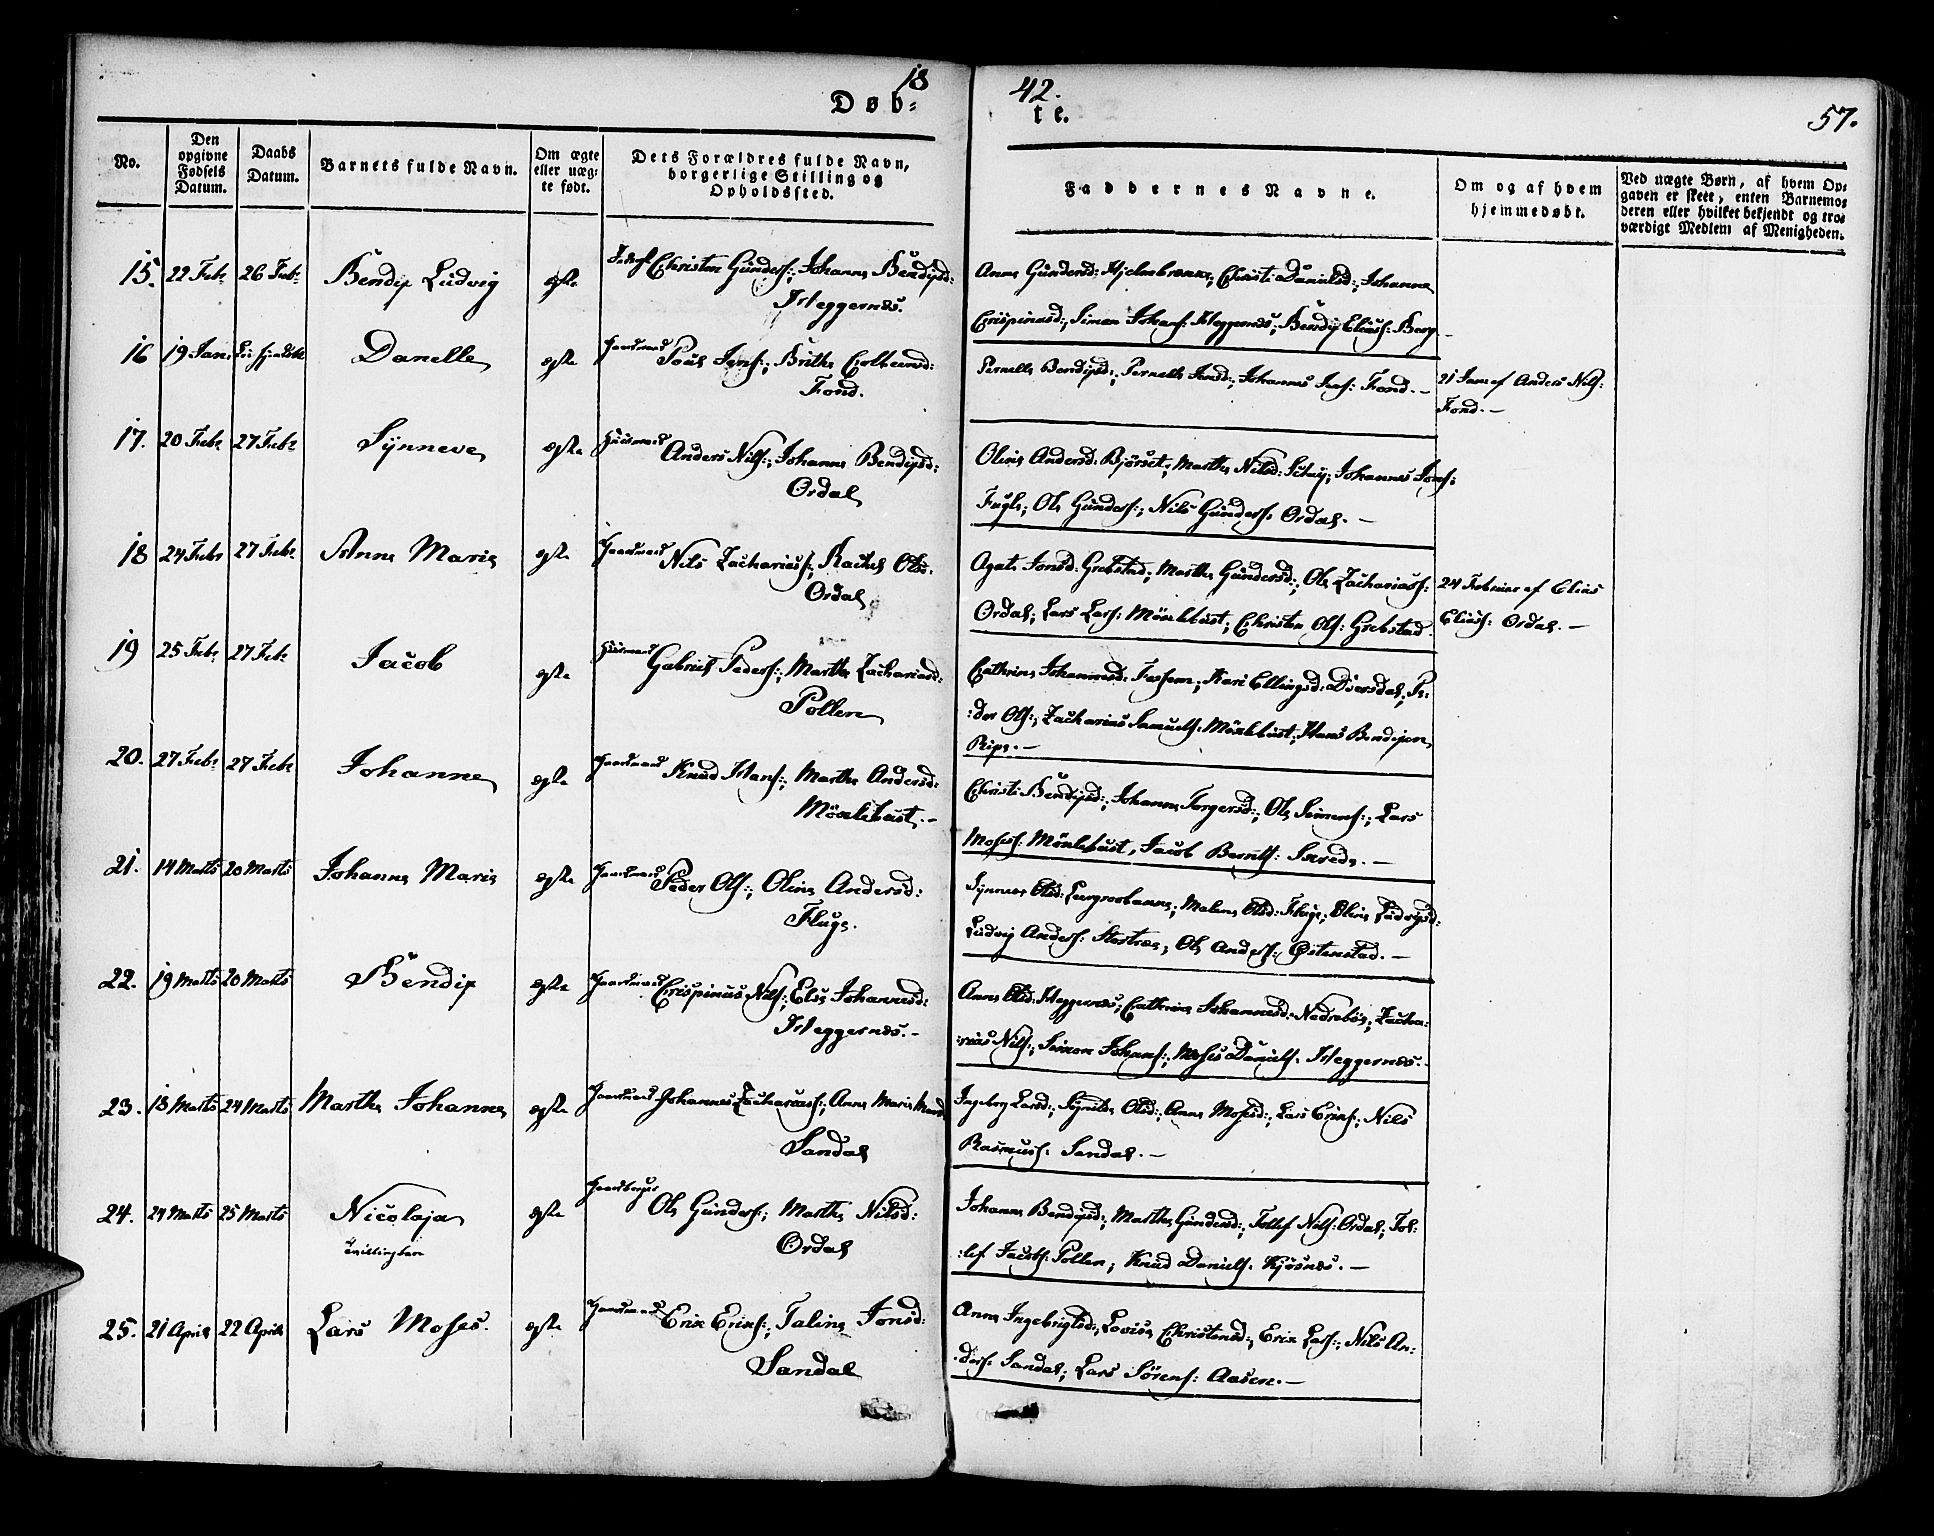 18
42.
57.
Døb-
te.
No.
Den opgivne Fødsels Datum.
Daabs Datum.
Barnets fulde Navn.
Om ægte eller uægte født.
Dets Forældres fulde Navn, borgerlige Stilling og Opholdssted.
Faddernes Navne.
Om og af hvem hjemmedøbt.
Ved uægte Børn, af hvem Opgaven er skeet, enten Barnemoderen eller hvilket bekjendt og troværdigt Medlem af Menigheden.
15. 22 Febr 26 Febr: Bendix Ludvig ægte Christen Gunders:, Johanne Bendixd:
Heggernes.
Anne Gundersd: Hjelmbrække, Christi Danielsd:, Johanne
Crispinusd:, Simon Johans: Heggernes, Bendix Eliass: Berg
16 19 Jan. Danelle ægte Gaardmand Poul Jens:, Brithe Colbeinsd:
Fond.
Pernelle Bendixd:, Pernelle Jensd:, Johannes Jens: Fond.-
21 Jan af Anders Nils:
Fond.-
17. 20 Febr 27 Febr Synneve ægte Huusmand Anders Nils:, Johanne Bendixd:
Ordal
Oline Andersd: Bjørset, Marthe Nilsd:, Johannes Jons:
Fugle, Ole Gunders:, Nils Gunders: Ordal.-
18 24 Febr 27 Febr Anne Marie ægte Gaardmand Nils Zacharias:, Rachel Olsd.
Ordal
Agate Jonsd: Grebstad, Marthe Gundersd:, Ole Zacharias:
Ordal, Lars Lars: Mönlebust, Christen Ols: Grebstad.
24 Februar af Elias
Elias: Ordal.-
19 25 Febr 27 Febr Jacob ægte Huusmand Gabriel Peders:, Marthe Zachariasd:
Pollen
Cathrine Johannesd:, Kari Ellingsd: Dvergsdal, Pe-
:der Ols:, Zacharias Samuels: Mönlebust, Hans Bendixen
Ripe.-
20. 27 Febr 27 Febr Johanne ægte Gaardmand Knud Hans:, Marthe Andersd:
Mönlebust.-
Christi Bendixd:, Johanne Torgersd:, Ole Simens:, Lars
Moses: Mönlebust, Jacob Bernts:.-
21. 14 Marts 20 Marts Johanne Marie ægte Gaardmand Peder Ols:, Oline Andersd:
Fluge.
Synneve Olsd:, Malene Olsd: Fluge, Oline Ludvigsd:
Ludvig Anders:, Ole Anders: Østenstad.-
22. 19 Marts 20 Marts Bendix ægte Gaardmand Crispinus Nils:, Elis Johannesd:
Heggernes.-
Anne Olsd: Heggernes, Cathrine Johannesd: Nedrebøe, Zacha-
:rias Nils:, Simon Johans:, Moses Daniels: Heggernes.-
23. 13 Marts 24 Marts Marthe Johanne ægte Gaardmand Johannes Zacharias:, Anne Marie
Sandal
Ingeborg Larsd:, Synneve Olsd:, Anne Mosesd:, Lars Eriks:, Nils
Rasmus: Sandal.-
24. 24 Marts 25 Marts Nicolaja ægte Ole Gunders:, Marthe Nilsd:
Tvillingbarn
Ordal
Johanne Bendixd:, Marthe Gundersd:, Tollef Nils: Ordal, Tol-
:lef Jacobs: Pollen, Knud Daniels: Kjøsnes.-
25. 21 April 22 April Lars Moses. ægte Gaardmand Erik Eriks:, Taline Jonsd:
Sandal
Anne Ingebrigtsd:, Lovise Christensd:, Erik Lars:, Nils An-
:ders: Sandal, Lars Sörens: Aasen.-